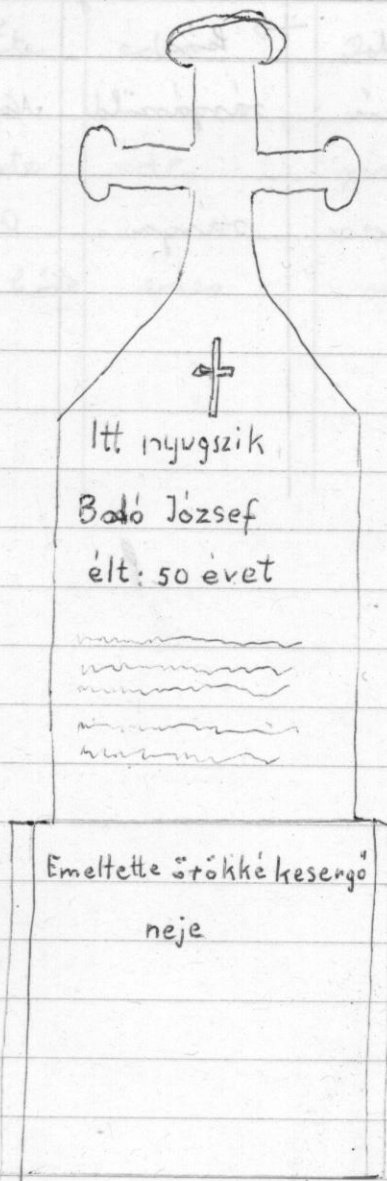 Itt nyugszik
Bodó József
élt: 50 évet
Emeltette örökké kesergő
neje